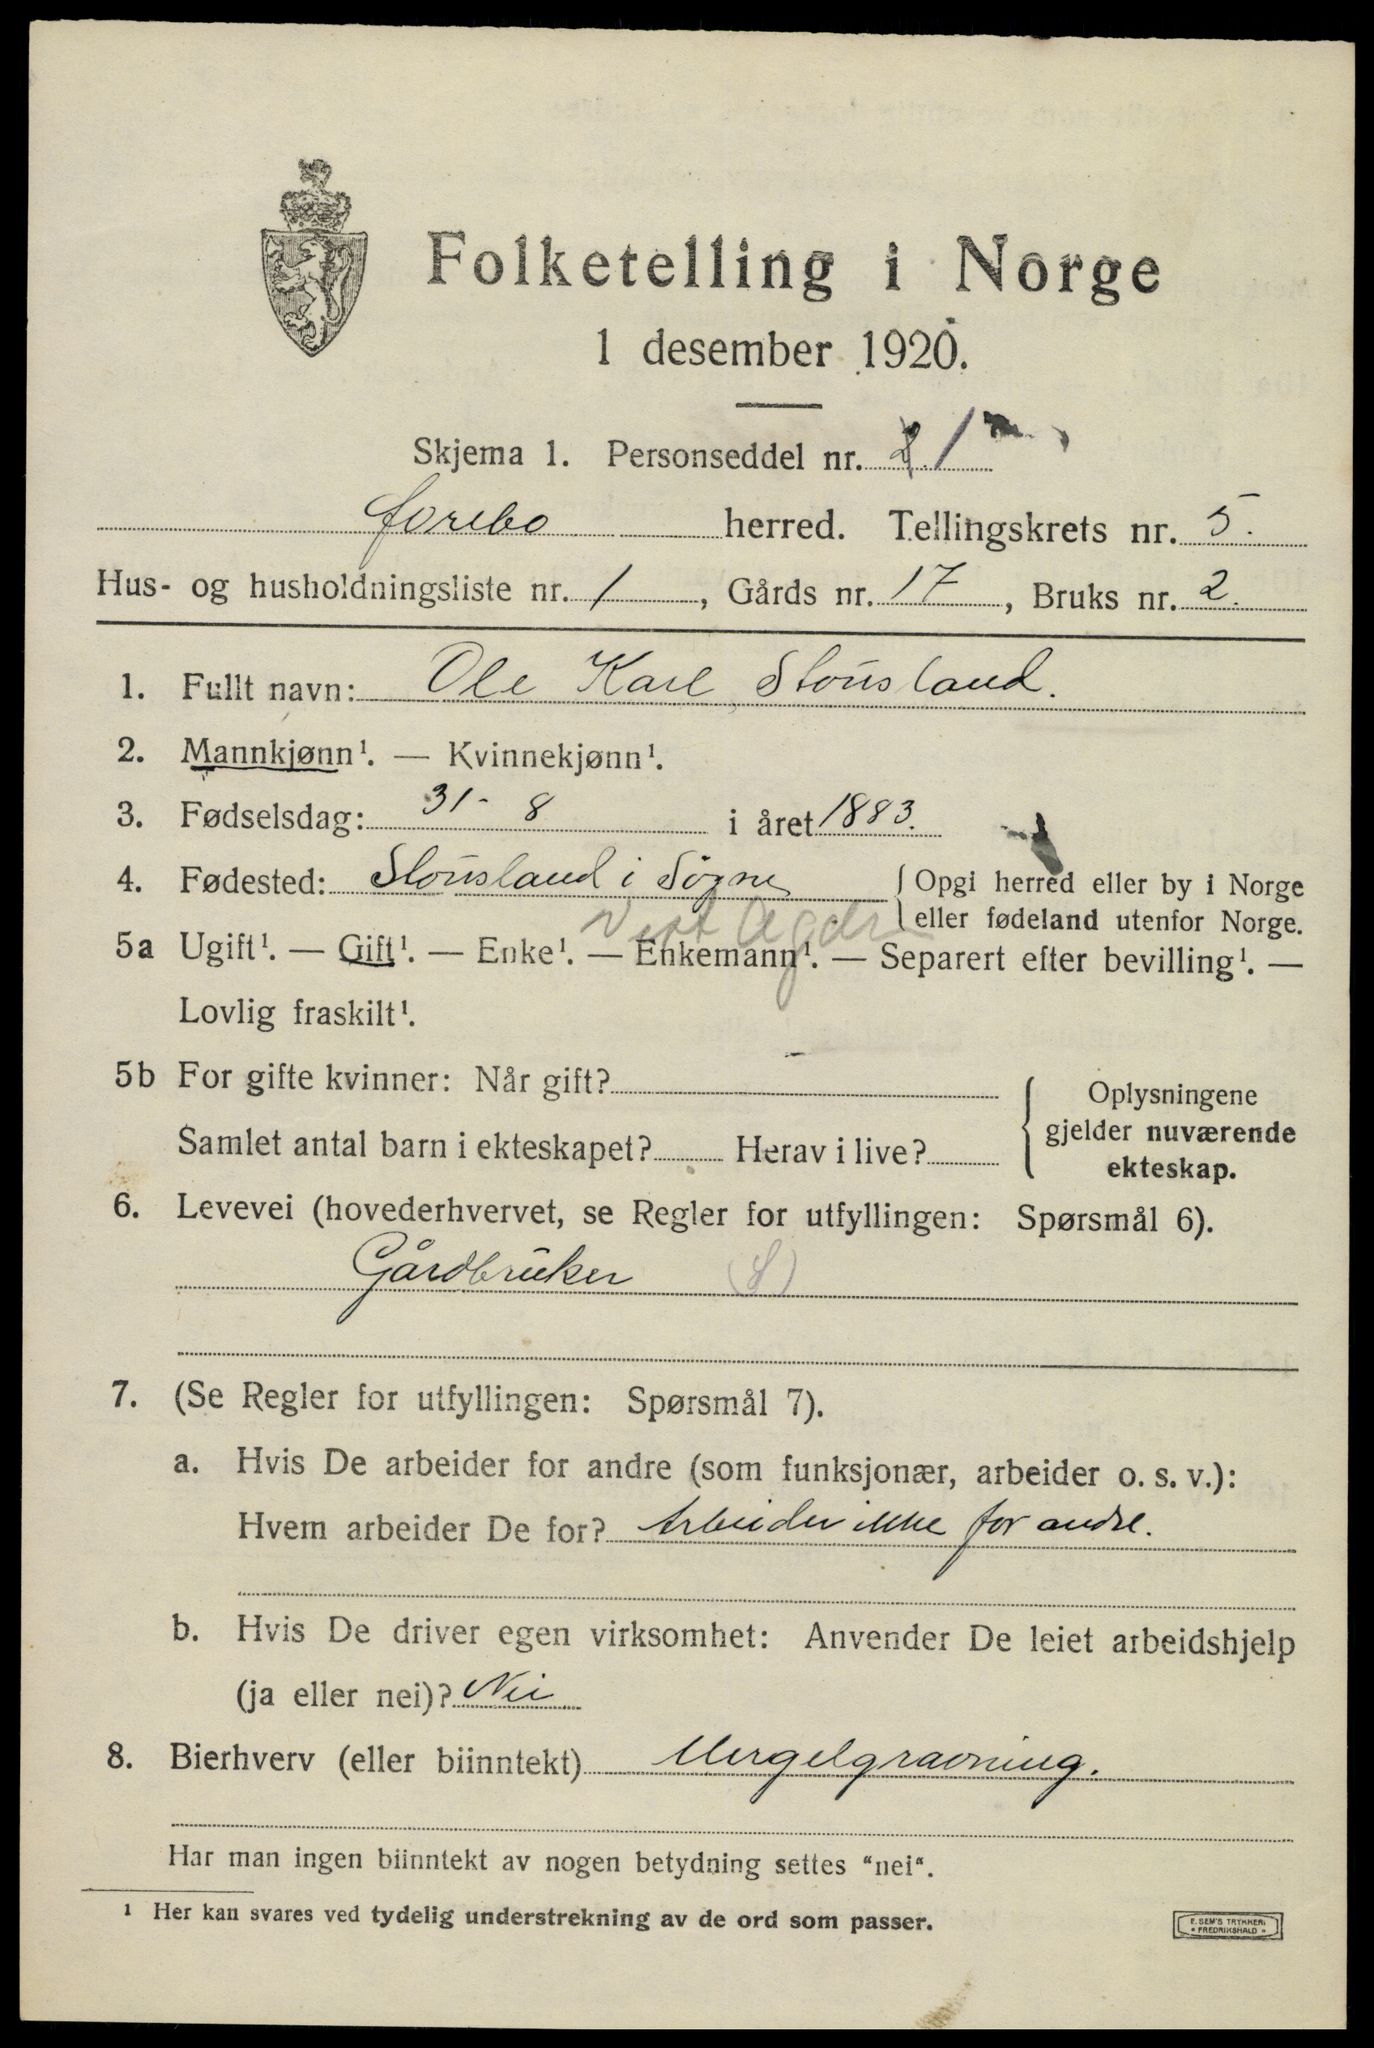 Folketelling i Norge
1 desember 1920.
Skjema 1. Personseddel nr. 1
herred. Tellingskrets nr. 5.
Hus- og husholdningsliste nr. 1, Gårds nr. 17, Bruks nr. 2.
1. Fullt navn: Ole Karl Stousland.
2. Mannkjønn¹. — Kvinnekjønn¹.
3. Fødselsdag: 31 - 8 i året 1883.
4. Fødested: Stousland i Søgne { Opgi herred eller by i Norge
eller fødeland utenfor Norge.
Vest Agder
5a Ugift¹. — Gift¹. — Enke¹. — Enkemann¹. — Separert efter bevilling¹. —
Lovlig fraskilt¹.
5b For gifte kvinner: Når gift? —
Samlet antal barn i ekteskapet? Herav i live? { Oplysningene
gjelder nuværende
ekteskap.
6. Levevei (hovederhvervet, se Regler for utfyllingen: Spørsmål 6).
Gårdbruker (S)
7. (Se Regler for utfyllingen: Spørsmål 7).
a. Hvis De arbeider for andre (som funksjonær, arbeider o. s. v.):
Hvem arbeider De for? Arbeider ikke for andre.
b. Hvis De driver egen virksomhet: Anvender De leiet arbeidshjelp
(ja eller nei)? Nei
8. Bierhverv (eller biinntekt) Mergelgravning.
Har man ingen biinntekt av nogen betydning settes "nei".
¹ Her kan svares ved tydelig understrekning av de ord som passer.
E. SEM'S TRYKKERI
FREDRIKSHALD